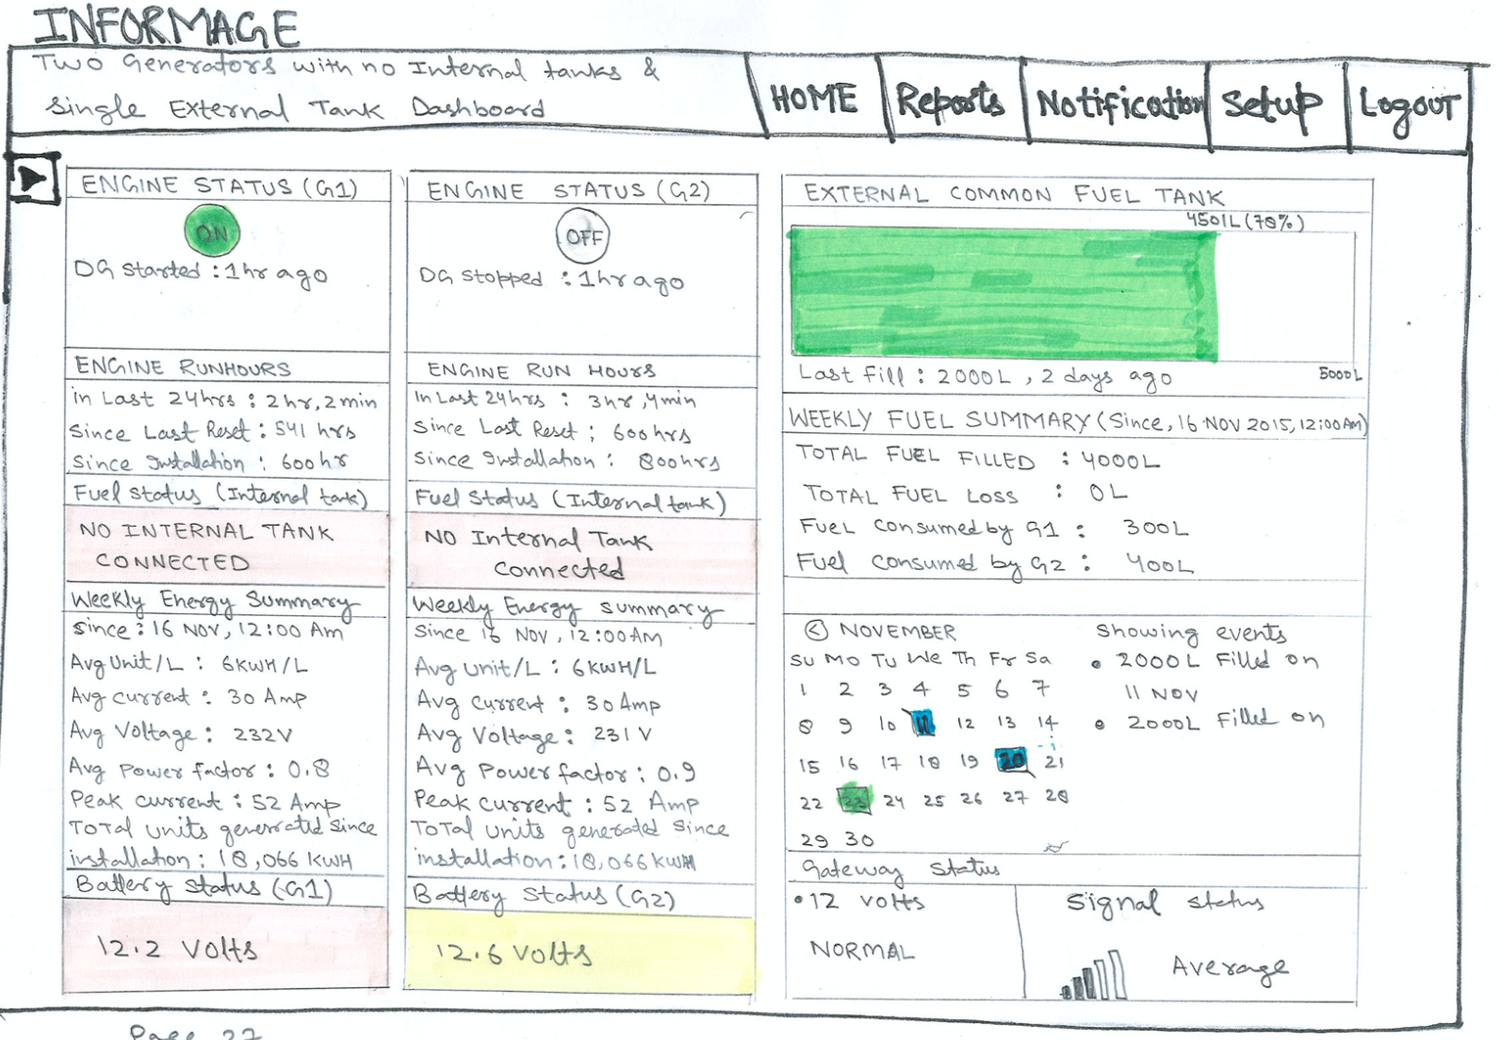 INFORMAGE
Two Generators with no Internal tanks &
Single External Tank Dashboard
HOME
Reports
Notification
Setup
Logout
ENGINE STATUS (G1)
ON
DG started : 1hr ago
ENGINE RUNHOURS
in Last 24hrs : 2hr, 2min
Since Last Reset : 541 hrs
Since Installation : 600hr
Fuel Status (Internal tank)
NO INTERNAL TANK
CONNECTED
Weekly Energy Summary
Since : 16 NOV, 12:00 Am
Avg Unit/L : 6KWH/L
Avg Current : 30 Amp
Avg Voltage : 232V
Avg Power factor : 0.8
Peak current : 52 Amp
Total units generated since
installation : 18,066 KWH
Battery Status (G1)
12.2 Volts
ENGINE STATUS (G2)
OFF
DG stopped : 1hr ago
ENGINE RUN HOURS
In Last 24hrs : 3hr, 4min
Since Last Reset : 600hrs
Since Installation : 800hrs
Fuel Status (Internal tank)
NO Internal Tank
Connected
Weekly Energy summary
Since 16 NOV, 12:00AM
Avg Unit/L : 6KWH/L
Avg Current : 30Amp
Avg Voltage : 231V
Avg Power factor : 0.9
Peak current : 52 Amp
Total Units generated since
installation : 18,066 KWH
Battery Status (G2)
12.6 Volts
EXTERNAL COMMON FUEL TANK
4501L (78%)
Last fill : 2000L, 2 days ago
5000L
WEEKLY FUEL SUMMARY (Since, 16 NOV 2015, 12:00Am)
TOTAL FUEL FILLED : 4000L
TOTAL FUEL LOSS : 0L
Fuel Consumed by G1 : 300L
Fuel Consumed by G2 : 400L
< NOVEMBER
SU MO TU We Th Fr Sa
1 2 3 4 5 6 7
8 9 10 11 12 13 14
15 16 17 18 19 20 21
22 23 24 25 26 27 28
29 30
Showing events
• 2000L Filled on
11 NOV
• 2000L Filled on
Gateway Status
• 12 volts
NORMAL
Signal status
Average
Page 27